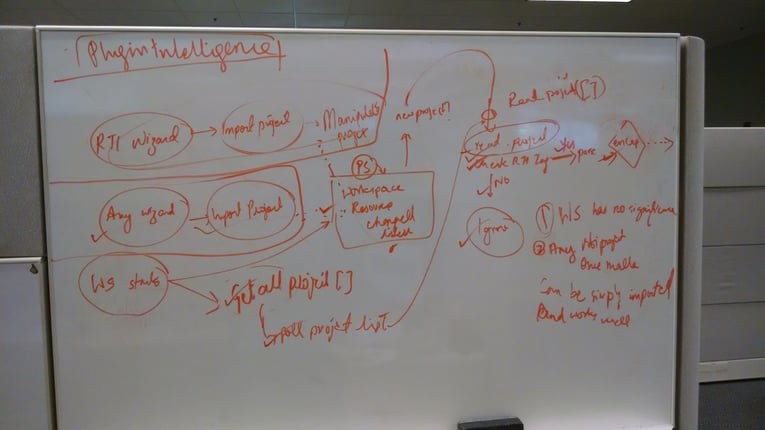 Plugin Intelligence
RTI Wizard
Import project
Manipulate
project
new project[]
Read project[]
read project
check RTI Tag
Yes
parse
NO
Ignore
PS
Workspace
Resource
changed
listener
Any wizard
Import Project
WS starts
Get all project []
poll project list
① WS has no significance
② Any project
One
Can be simply imported
and works
well